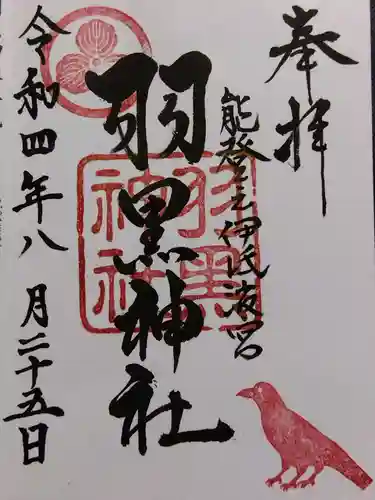 奉拝
能登之伊氏波宮
羽黒神社
令和四年八月二十五日
羽黒
神社